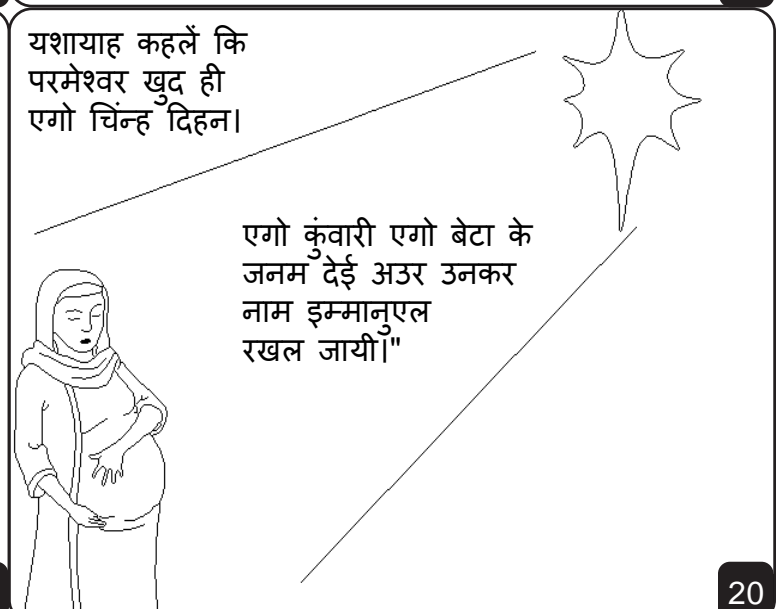 यशायाह कहलें कि
परमेश्वर खुद ही
एगो चिंन्ह दिहन।
एगो कुंवारी एगो बेटा के
जनम देई अउर उनकर
नाम इम्मानुएल
रखल जायी।"
20